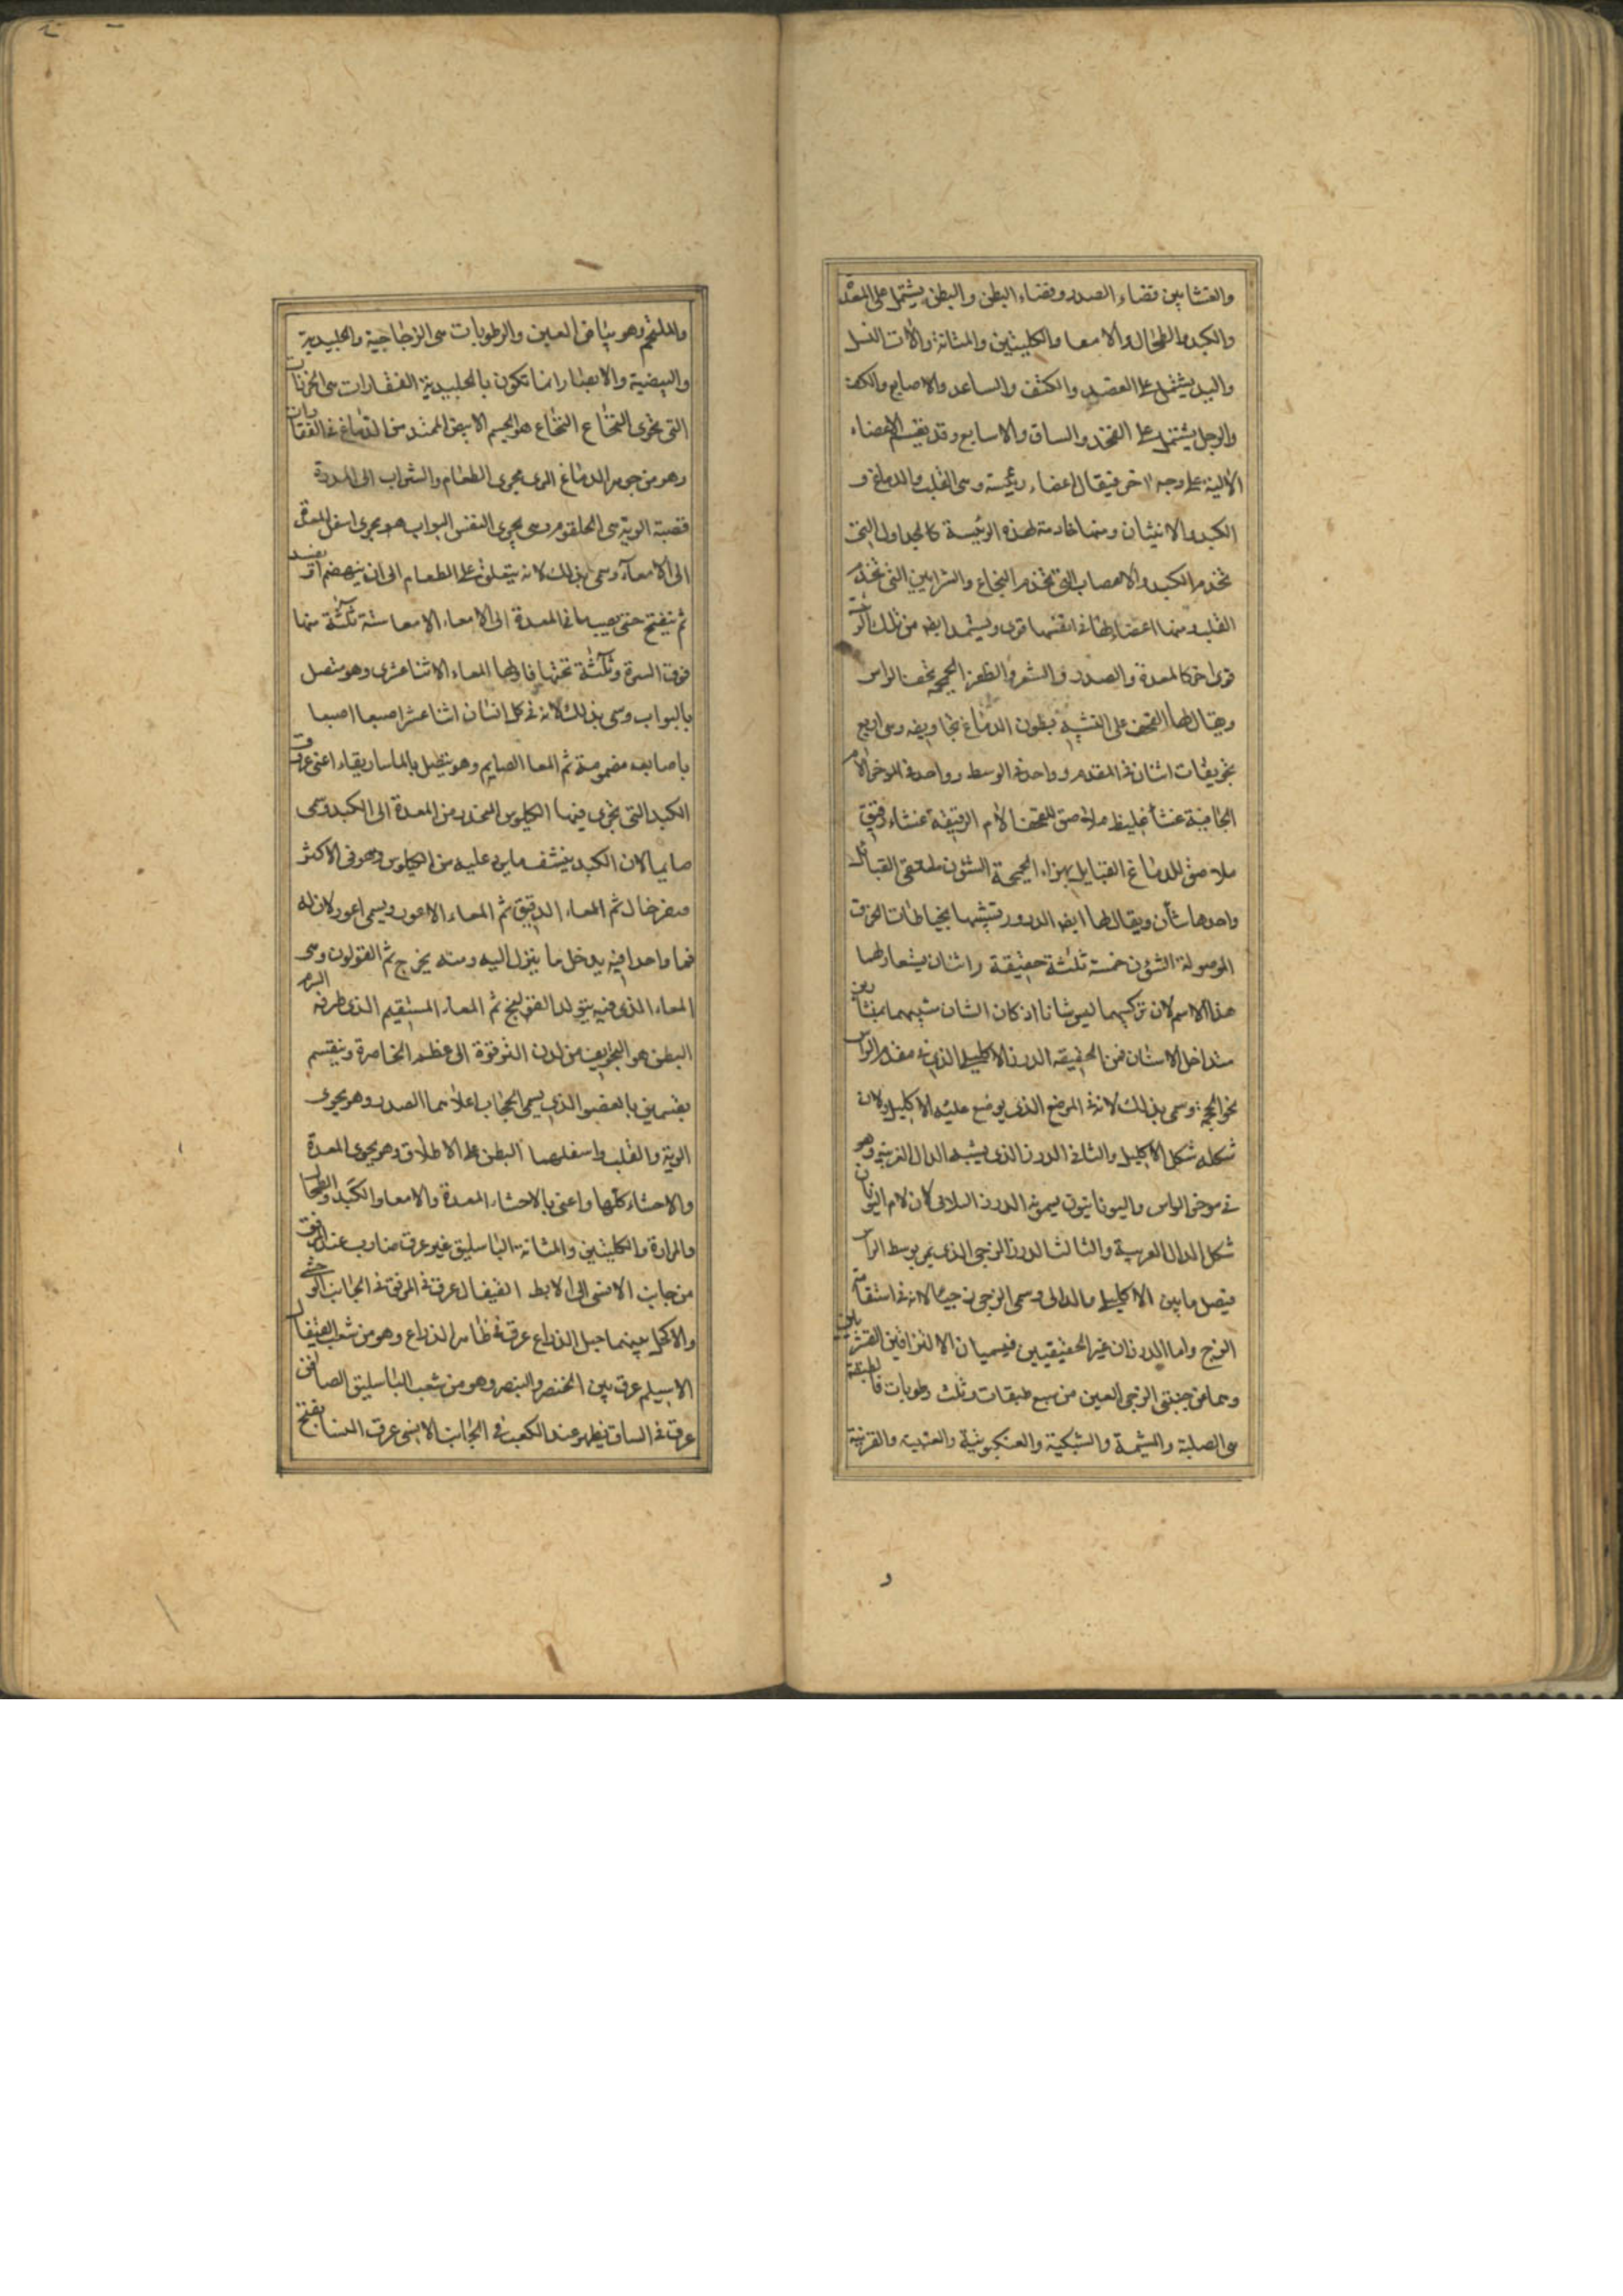 والغشا بين فضاء الصدر وفضاء البطن والبطن يشتمل على المعدة
والكبد والطحال والامعا والكليتين والمثانة والات النسل
واليد يشتمل على العضد والكتف والساعد والاصابع والكف
والرجل يشتمل على الفخذ والساق والاسابع وقد يقسم الاعضاء
الآلية على وجه اخر فيقال اعضاء رئيسة وهى القلب والدماغ و
الكبد والانثيان ومنها خادمة لهذه الرئيسة كالجداول التى
تخدم الكبد والاعصاب التى تخدم النخاع والشرايين التى تخدم
القلب ومنها اعضاء لها فى انفسها قوى ويستمد ايضا من تلك
قوى اخر كالمعدة والصدر والشعر والظفر الجمجمة قحف الراس
ويقال لها القحف على التشبيه بطون الدماغ تجاويفه وهى اربع
تجويفات اثنان فى المقدم وواحد فى الوسط وواحد فى الموخر الام
الجافية غشاء غليظ ملاصق للقحف الام الرقيقة غشاء رقيق
ملاصق للدماغ القبايل اجزاء الجمجمة الشئون ملتقى القبائل
واحدها شأن ويقال لها ايضا الدروز تشبيها بخياطات الخرق
الموصولة الشؤن خمسة ثلثة حقيقة واثنان يستعار لهما
هذا الاسم لان تركيبهما ليس شانا اذ كان الشان شبيهما بمنشارين
متداخل الاسنان فمن الحقيقه الدرز الاكليلى الذى فى مقدم الراس
نحو الجبهة وسمى بذلك لانه فى الموضع الذى يوضع عليه الاكليل ولان
شكله شكل الاكليل والثانى الدرز الذى يشبه الدال العربية وهو
فى موخر الراس واليونانيون يسمونه الدرز اللامى لان لام اليونان
شكل الدال العربية والثالث الدرز الزجى الذى يمر بوسط الراس
فيصل ما بين الاكليلى والدالى وسمى الزجى زجيا لانه فى استقامة
الزج واما الدرزان غير الحقيقيين فيسميان الالتزاقين القشريين
وهما من جنبتى الزجى العين من سبع طبقات وثلث رطوبات فالطبقة
هى الصلبة والمشيمة والشبكية والعنكبوتية والعنبية والقرنية
والملتحم وهو بياض العين والرطوبات هى الزجاجية والجليدية
والبيضية والابصار انما تكون بالجليدية الفقارات هى الخرزات
التى تحوى النخاع النخاع هو الجسم الابيض الممتد من الدماغ فى الفقارات
وهو من جوهر الدماغ المرى مجرى الطعام والشراب الى المعدة
قصبة الرية هى الحلقوم وهى مجرى النفس البواب هو مجرى اسفل المعدة
الى الامعاء وسمى بذلك لانه ينغلق على الطعام الى ان ينهضم او يفسد
ثم ينفتح حتى يصير ما فى المعدة الى الامعاء الامعا ستة ثلثة منها
فوق السرة وثلثة تحتها فاولها المعاء الاثنا عشرى وهو متصل
بالبواب وسمى بذلك لانه فى كل انسان اثنا عشر اصبعا اصبعا
باصابعه مضمومة ثم المعا الصايم وهو يتصل بالماساريقاء اعنى عروق
الكبد التى تجرى فيها الكيلوس المنحدر من المعدة الى الكبد وسمى
صايما لان الكبد ينشف ما يرد عليه من الكيلوس وهو فى الاكثر
صفر خال ثم المعاء الدقيق ثم المعاء الاعور ويسمى اعور لان له
فما واحدا فيه يدخل ما ينزل اليه ومنه يخرج ثم القولون وهى
المعاء الذى فيه يتولد القولنج ثم المعاء المستقيم الذى طرفه السرم
البطن هو التجويف من لدن الترقوة الى عظم الخاصرة وينقسم
بقسمين بالعضو الذى يسمى الحجاب اعلاهما الصدر وهو يحوى
الرية والقلب واسفلهما البطن على الاطلاق وهو يحوى المعدة
والاحشاء كلها واعنى بالاحشاء المعدة والامعا والكبد والطحال
والمرارة والكليتين والمثانة الباسليق غير عرق ضارب عند المرفق
من جانب الانسى الى الابط القيفال عرق فى المرفق فى الجانب الوحشى
والاكحل بينهما حبل الذراع عرق فى ظاهر الذراع وهو من شعب القيفال
الاسيلم عرق بين الخنصر والبنصر وهو من شعب الباسليق الصافن
عرق فى الساق يظهر عند الكعب فى الجانب الانسى عرق النسا يفتح